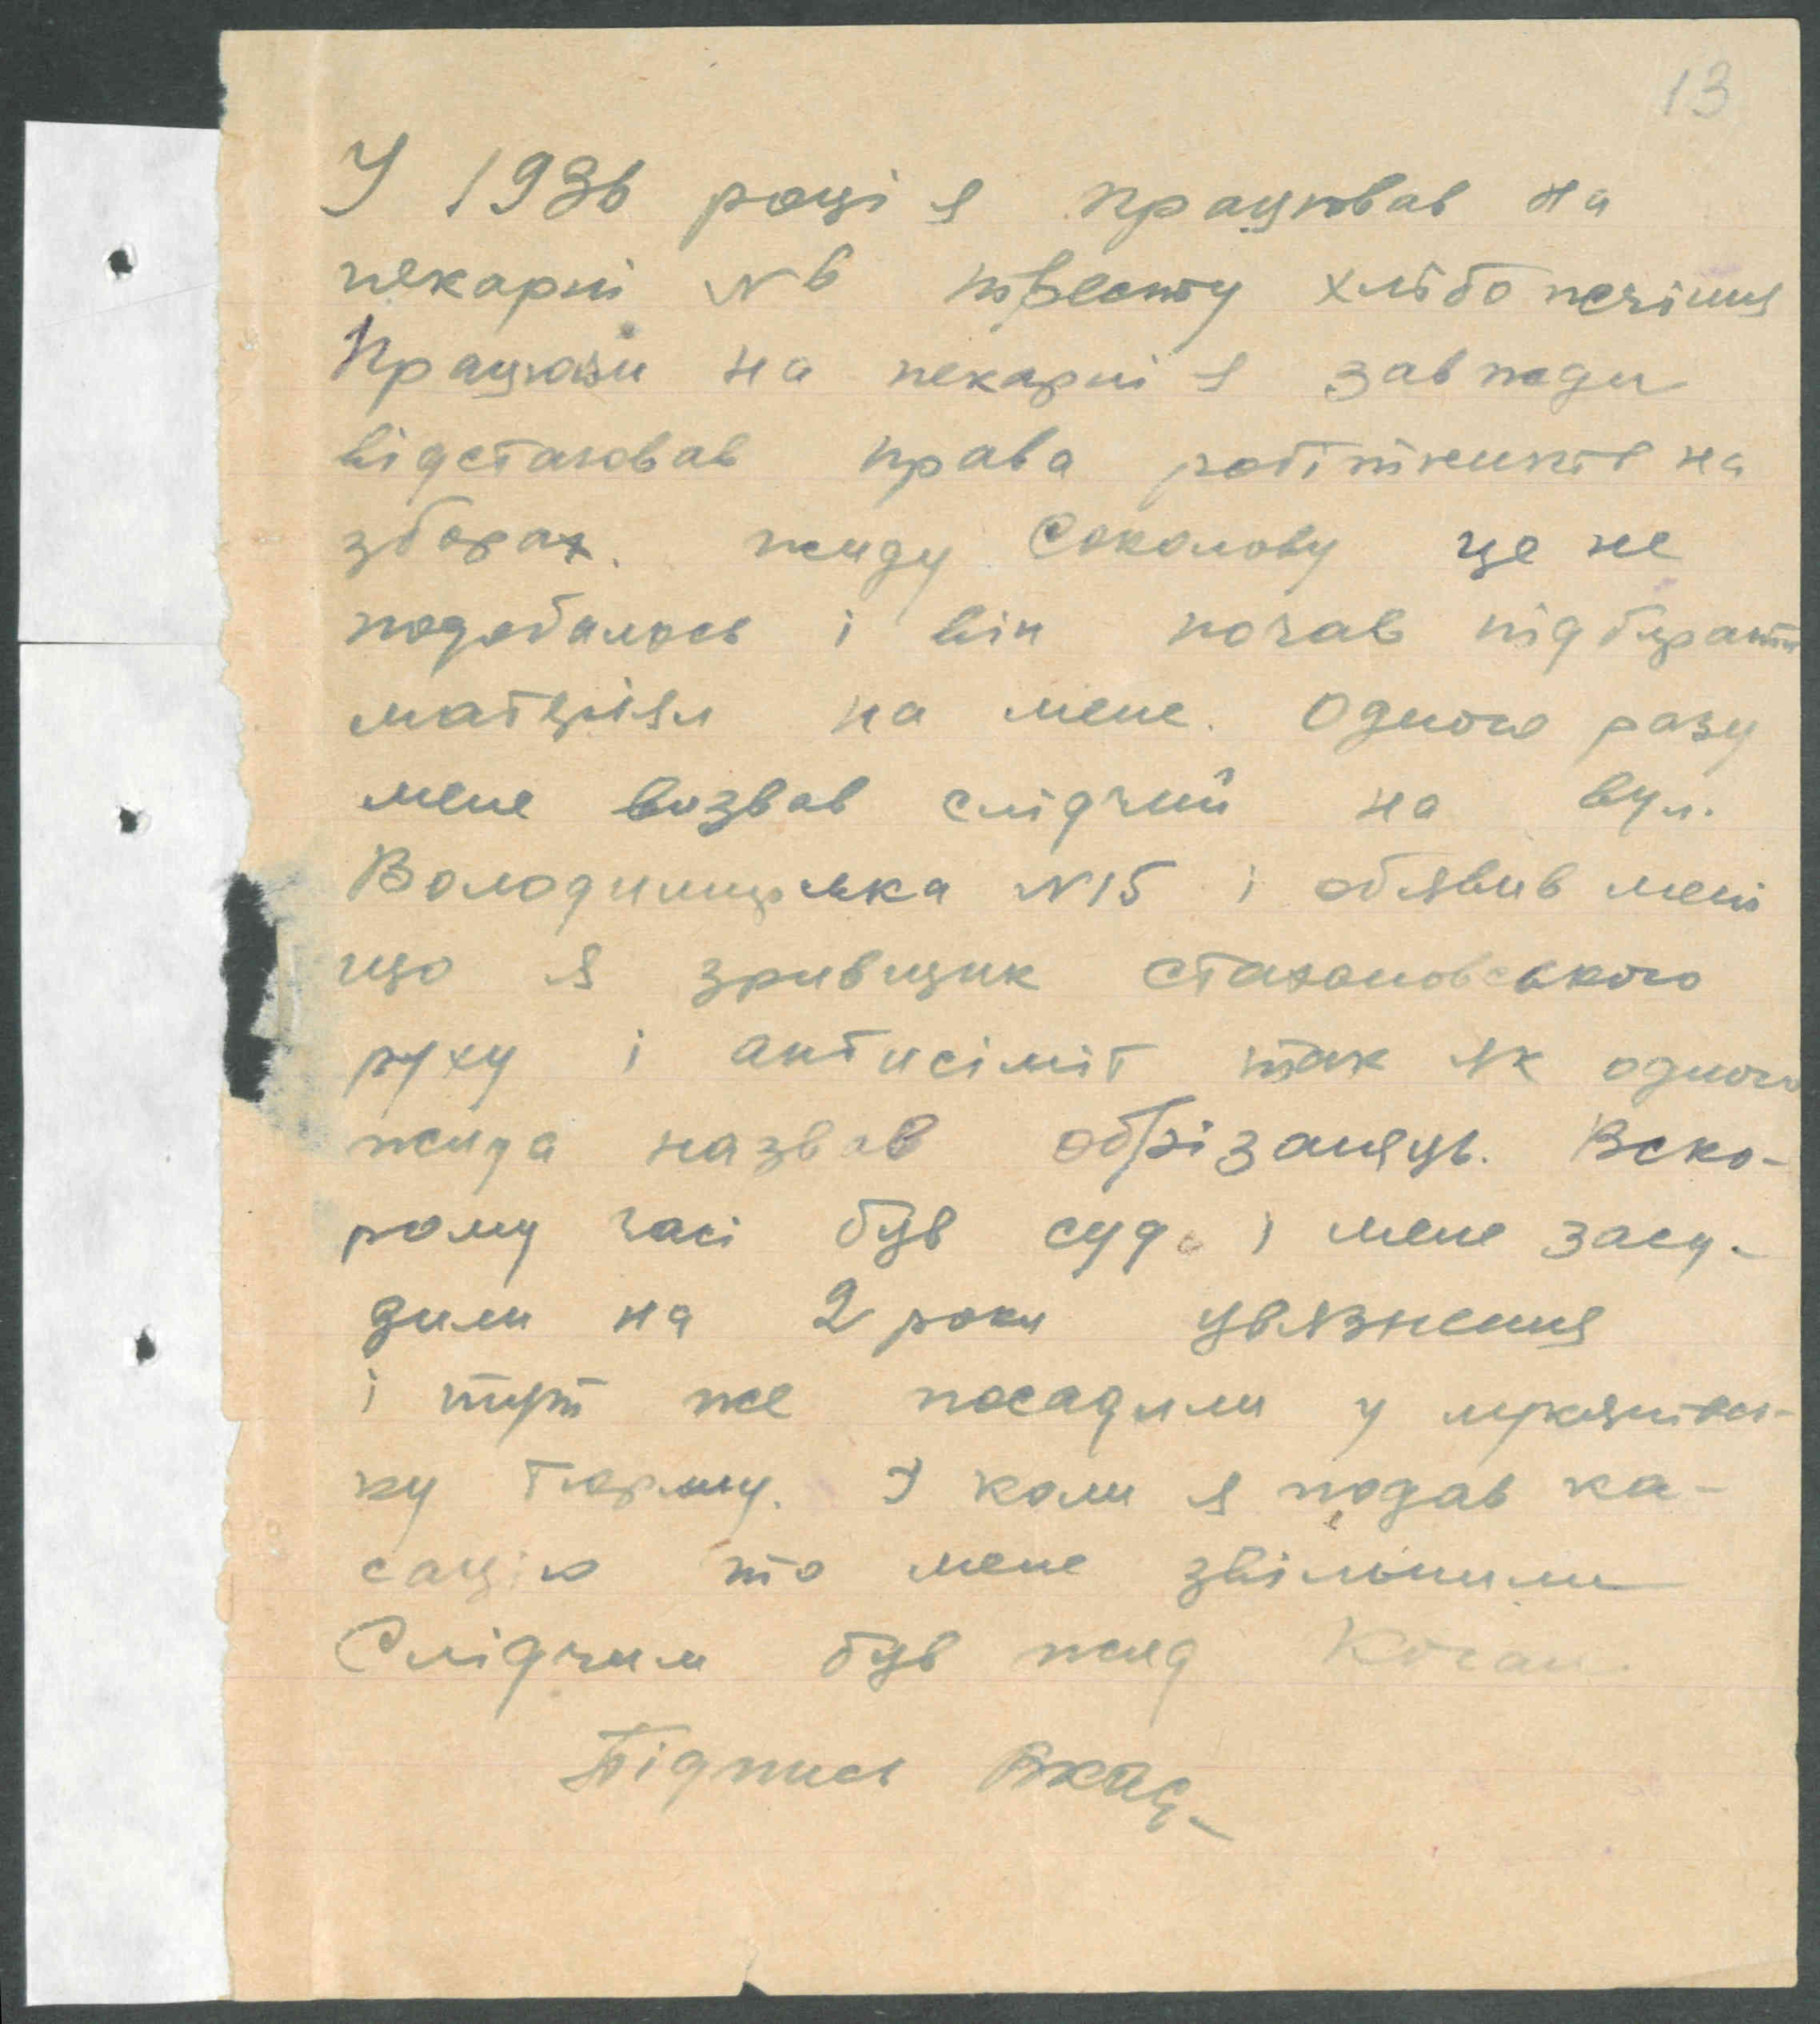 13
У 1936 році я працював на
пекарні №6 трвесту хлібопечіння
Працюючи на пекарні я завжди
відстаював права робітників на
зборах. жиду Соколову це не
подобалось і він почав підбірати
матеріял на мене. Одного разу
мене возвав слідчий на вул.
Володимирська №15 і обявив мені
що я зривщик стахоновського
руху і антисіміт так як одного
жида назвав обрізанець. Вско-
рому часі був суд і мене засу-
дили на 2 роки увязнення
і тут же посадили у лукянівсь-
ку тюрму. І коли я подав ка-
сацію то мене звільнили
Слідчим був жид Коган.
Підпись